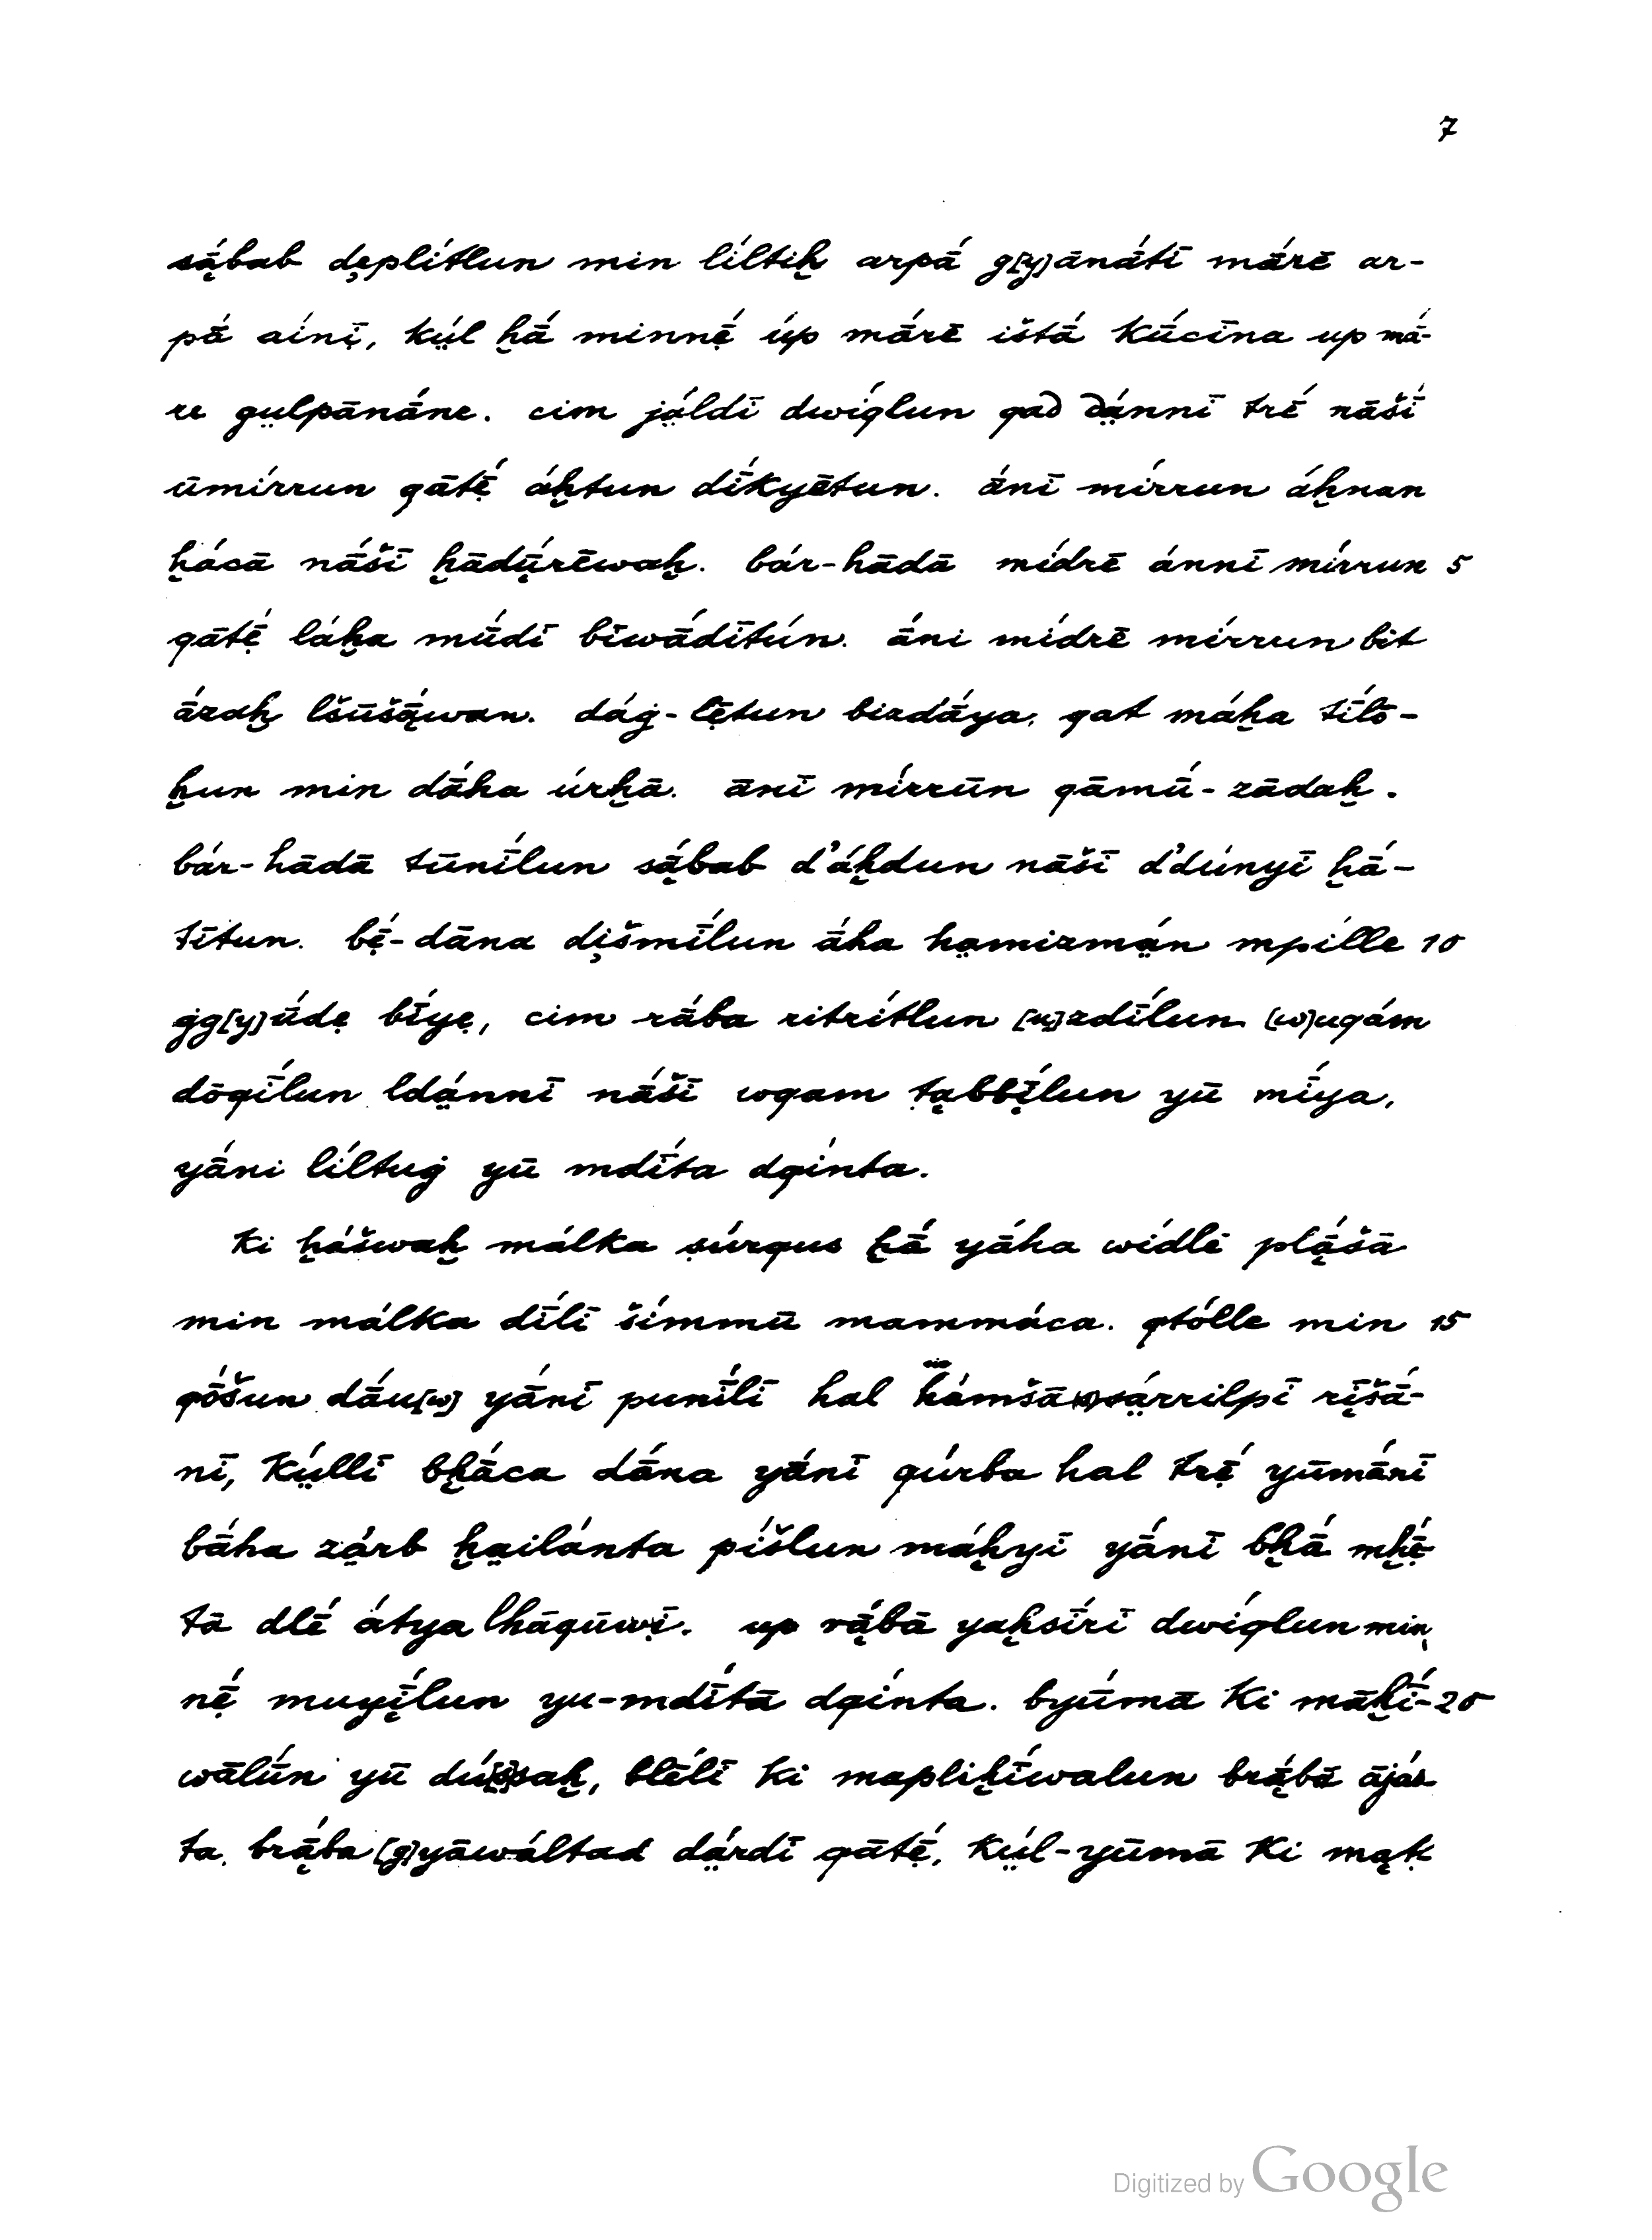 7
sạ́bab dẹplítlun min líltiḫ arpā́ g[y]ānā́tī mā́rē ar-
pā́ aínị̄, kṳ́l ḫā́ minnẹ́ úp mā́rē ištā́ kū́cīna up mā́-
re gṳlpānā́ne. cim jä́ldī dwíqlun qad dä́nnī trḗ nāšī́
ūmírrun qātẹ̄́ áḫtun dī́kyētun. ā́nī mírrun áḫnan
ḫácā nā́šī ḫādṳ̄́rēwaḫ. bár-hādā mídrē ánnī mírrun 5
qātẹ̄́ láḫa mū́dī bīwā́dītún. ā́ni mídrē mírrun bit
ā́zaḫ lšūšạ̄́wan. dáġ-lẹ̄tun bizdā́ya, qat máḫa tī́lō-
ḫun min dā́ha úrḫā. ānī mírrūn qāmū́-zādaḫ.
bár-hādā tūnī́lun sạ́bab d'áḫdun nāšī d'dúnyī ḫā́-
tītun. bẹ́-dāna dịšmī́lun ā́ha hamizmán mpílle 10
ġg[y]ū́dẹ bī́yẹ, cim rā́ba ritrítlun [u]zdī́lun (w)uqám
dōqī́lun ldä́nnī nā́šī wqam ṭạbbị̄́lun yū mī́ya,
yā́ni líltuġ yū mdī́ta dqínta.
ki ḫášwaḫ málka ṣúrgus ḫā́ yā́ha wídlē plạ̄́šā
min málka dī́lī šímmū mammáca. qtólle min 15
qṓšun dā́u[w] yā́nī punī́lī hal hámšā sä́rrilpī rị̄šā́-
nī, kṳ́llī bḫā́ca dā́na yā́nī qúrba hal trẹ́ yūmā́nī
bā́ha zạ́rb ḫailánta píšlun máḫyī yā́nī bḫā́ mḫẹ̄́
tā dlḗ átya lhāqūwị̄. up rạ̄́bā yaḫsī́rī dwíqlun min
nẹ́ muyị̄́lun yu-mdī́tā dqínta. byū́mā ki māḫī́- 20
wālū́n yū dú[ṣ]saḫ, blḗlī ki mapliḫī́walun brạ̄́bā ājáz
ta. brạ̄́ba [g]yāwáltad dä́rdī qātẹ̄́, kṳ́l-yūmā ki mạṭ
Digitized by Google